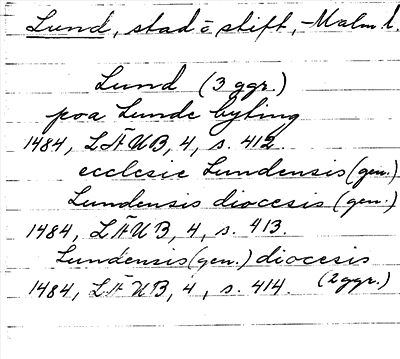 Lund, stad o stift, Malm l.
Lund (3 ggr.)
poa Lunde byting
1484, LÄUB, 4, s. 412.
ecclesie Lundensis (gen.)
Lundensis diocesis (gen.)
1484, LÄUB, 4, s. 413.
Lundensis (gen.) diocesis
1484, LÄUB, 4, s. 414. (2 ggr.)